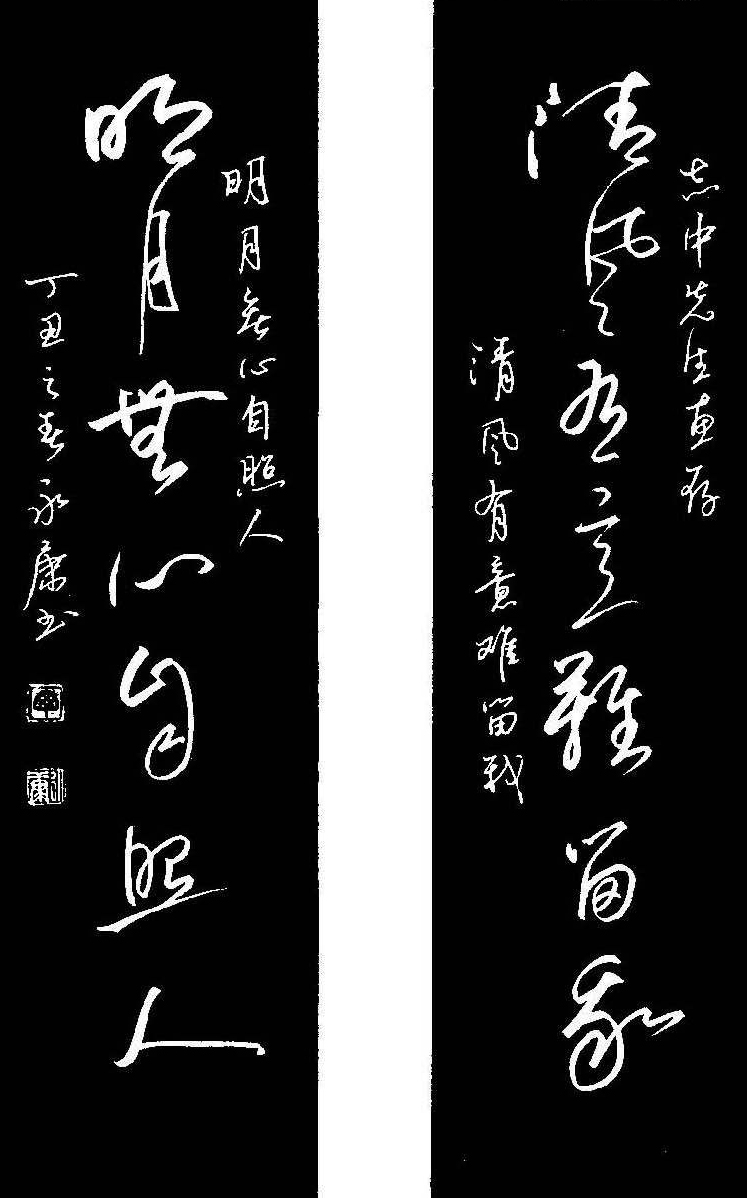 志中先生惠存
清风有意難留我
清风有意难留我
明月無心自照人
明月無心自照人
丁丑之春永康书